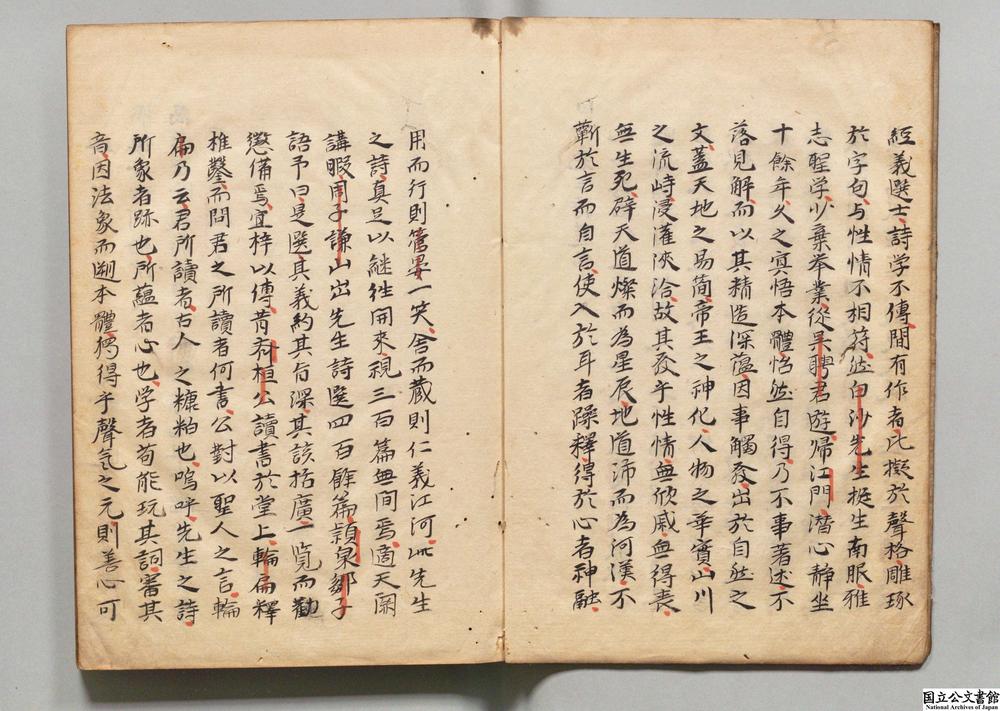 經義選士詩学不傳間有作者比擬於聲格雕琢
於字句与性情不相符然白沙先生挺生南服雅
志聖学少棄举業從吴聘君遊帰江門潜心静坐
十餘年久之冥悟本體怡然自得乃不事著述不
落見解而以其精造深蕴因事觸发出於自然之
文蓋天地之易简帝王之神化人物之華實山川
之流峙浸灌浹洽故其发乎性情無欣戚無得丧
無生死辟天道燦而為星辰地道沛而為河漢不
蘄於言而自言使入於耳者躁釋得於心者神融
用而行則管晏一笑舍而蔵則仁義江河此先生
之詩真足以継往開來視三百篇無間焉適天闕
講暇周子謙山出先生詩選四百餘篇頴泉鄒子
語予曰是選其義約其旨深其該括廣一覧而勸
懲備焉宜梓以傳昔齐桓公讀書於堂上輪扁釋
椎鑿而問君之所讀者何書公對以聖人之言輪
扁乃云君所讀者古人之糠粕也嗚呼先生之詩
所象者跡也所蘊者心也学者苟能玩其詞審其
音因法象而遡本體獨得乎聲氣之元則善心可
国立公文書館
National Archives of Japan